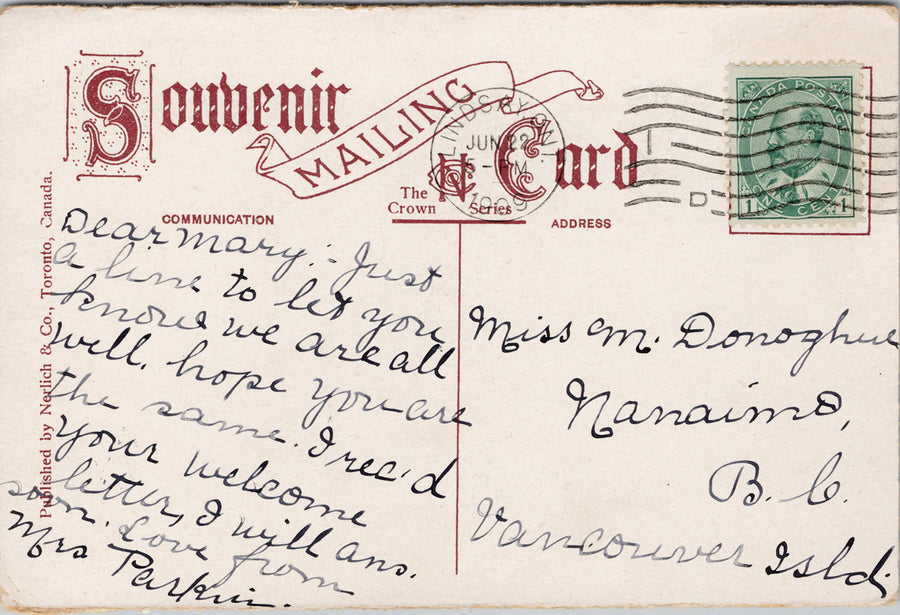 Souvenir
MAILING
Card
The Crown Series
LINDSAY, ONT.
JUN 22
5 - PM
1909
D
CANADA POSTAGE
ONE CENT
1 1
COMMUNICATION
ADDRESS
Published by Nerlich & Co., Toronto, Canada.
Dear Mary :- Just
a line to let you
know we are all
well, hope you are
the same. I rec'd
your welcome
letter, I will ans.
soon. Love from
Mrs Parkin.
Miss M. Donoghue
Nanaimo,
B. C.
Vancouver Isld.